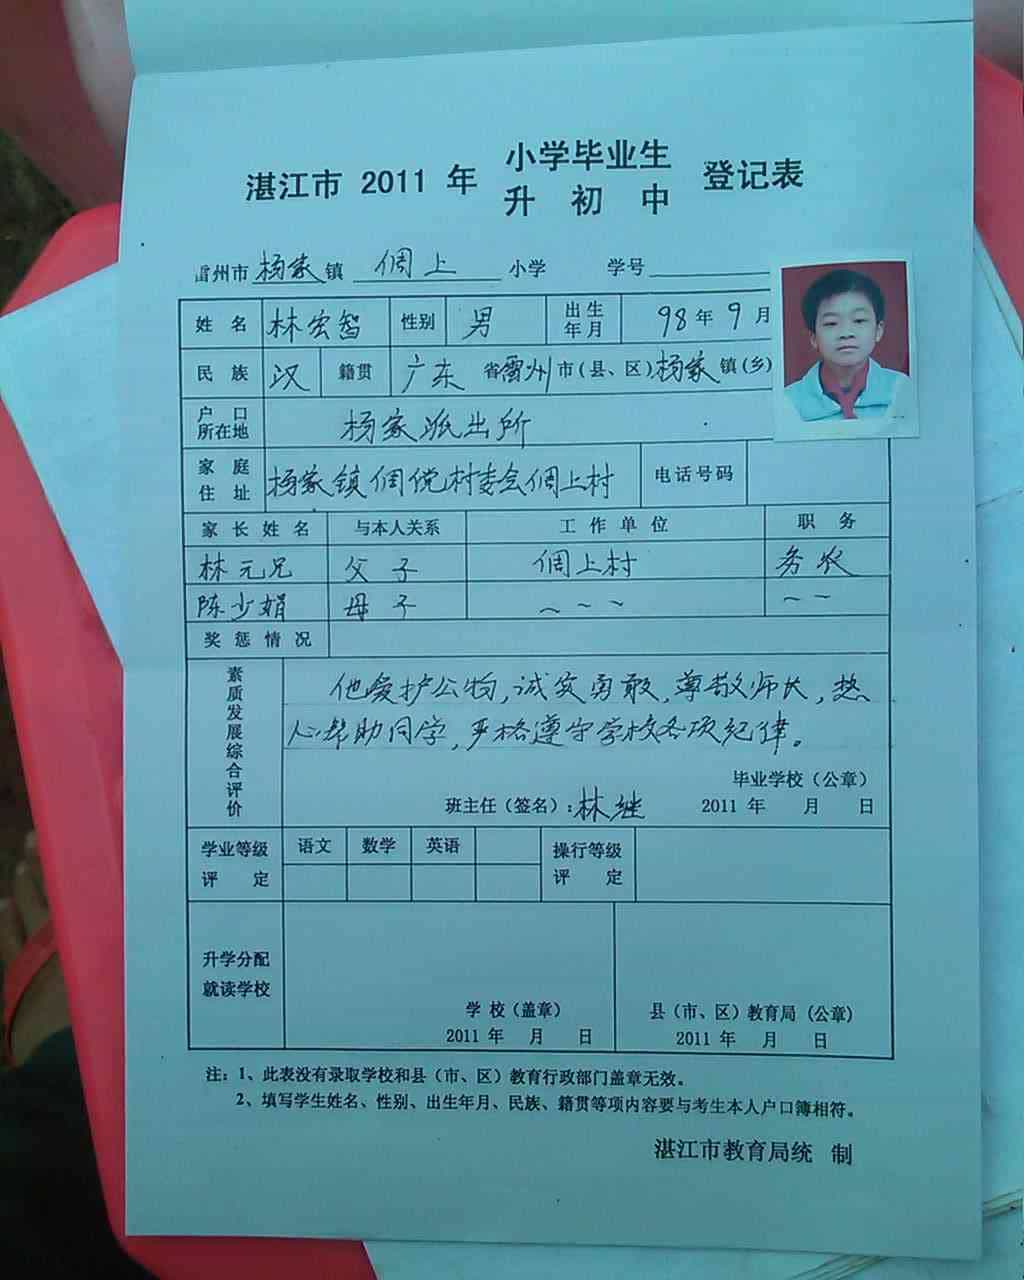 湛江市 2011 年 小学毕业生 登记表
升 初 中
雷州市杨家镇 倜上 小学 学号
姓 名 林宏智 性别 男 出生年月 98年9月
民 族 汉 籍贯 广东省雷州市(县、区)杨家镇(乡)
户 口 所在地 杨家派出所
家 庭 住 址 杨家镇倜傥村委会倜上村 电话号码
家 长 姓 名 与本人关系 工 作 单 位 职 务
林元兄 父子 倜上村 务农
陈少娟 母子 ~ ~ ~ ~ ~
奖 惩 情 况
素质发展综合评价
他爱护公物,诚实勇敢,尊敬师长,热
心帮助同学,严格遵守学校各项纪律。
毕业学校(公章)
班主任(签名):林继 2011 年 月 日
学业等级 语文 数学 英语 操行等级
评 定 评 定
升学分配
就读学校
学 校(盖章) 县(市、区)教育局(公章)
2011 年 月 日 2011 年 月 日
注: 1、此表没有录取学校和县(市、区)教育行政部门盖章无效。
2、填写学生姓名、性别、出生年月、民族、籍贯等项内容要与考生本人户口簿相符。
湛江市教育局统 制